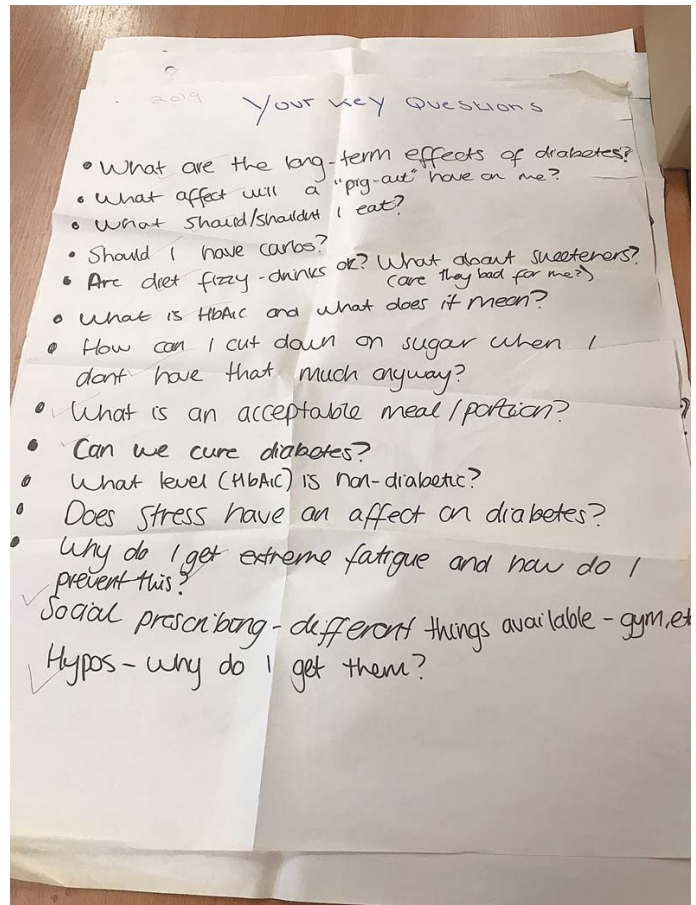 ?
2019 Your Key Questions
• What are the long-term effects of diabetes?
• What affect will a "pig-out" have on me?
• What should/shouldnt I eat?
• Should I have carbs?
• Are diet fizzy-drinks ok? What about sweeteners?
(are they bad for me?)
• What is HbA1c and what does it mean?
• How can I cut down on sugar when I
dont have that much anyway?
• What is an acceptable meal/portion?
• Can we cure diabetes?
• What level (HbA1c) is non-diabetic?
• Does stress have an affect on diabetes?
• Why do I get extreme fatigue and how do I
prevent this?
Social prescribing - different things available - gym, et
Hypos - why do I get them?